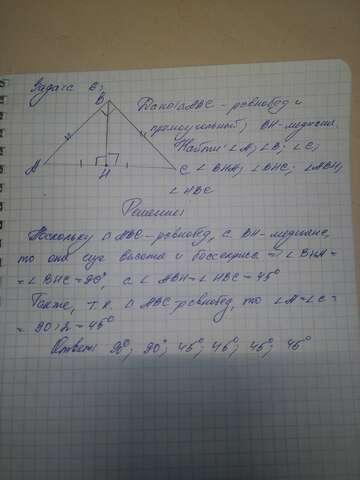 Задача 6;
Дано: △ABC - равнобед и
прямоугольный; BH - медиана.
Найти: ∠A; ∠B; ∠C;
∠BHA; ∠BHC; ∠ABH;
∠HBC
B
A
H
C
Решение:
Поскольку △ABC - равнобед, а BH - медиана,
то она еще высота и биссектриса => ∠BHA =
= ∠BHC = 90°, а ∠ABH = ∠HBC = 45°
Также, т.к. △ABC равнобед, то ∠A = ∠C =
= 90:2 = 45°
Ответ: 90°; 90°; 45°; 45°; 45°; 45°